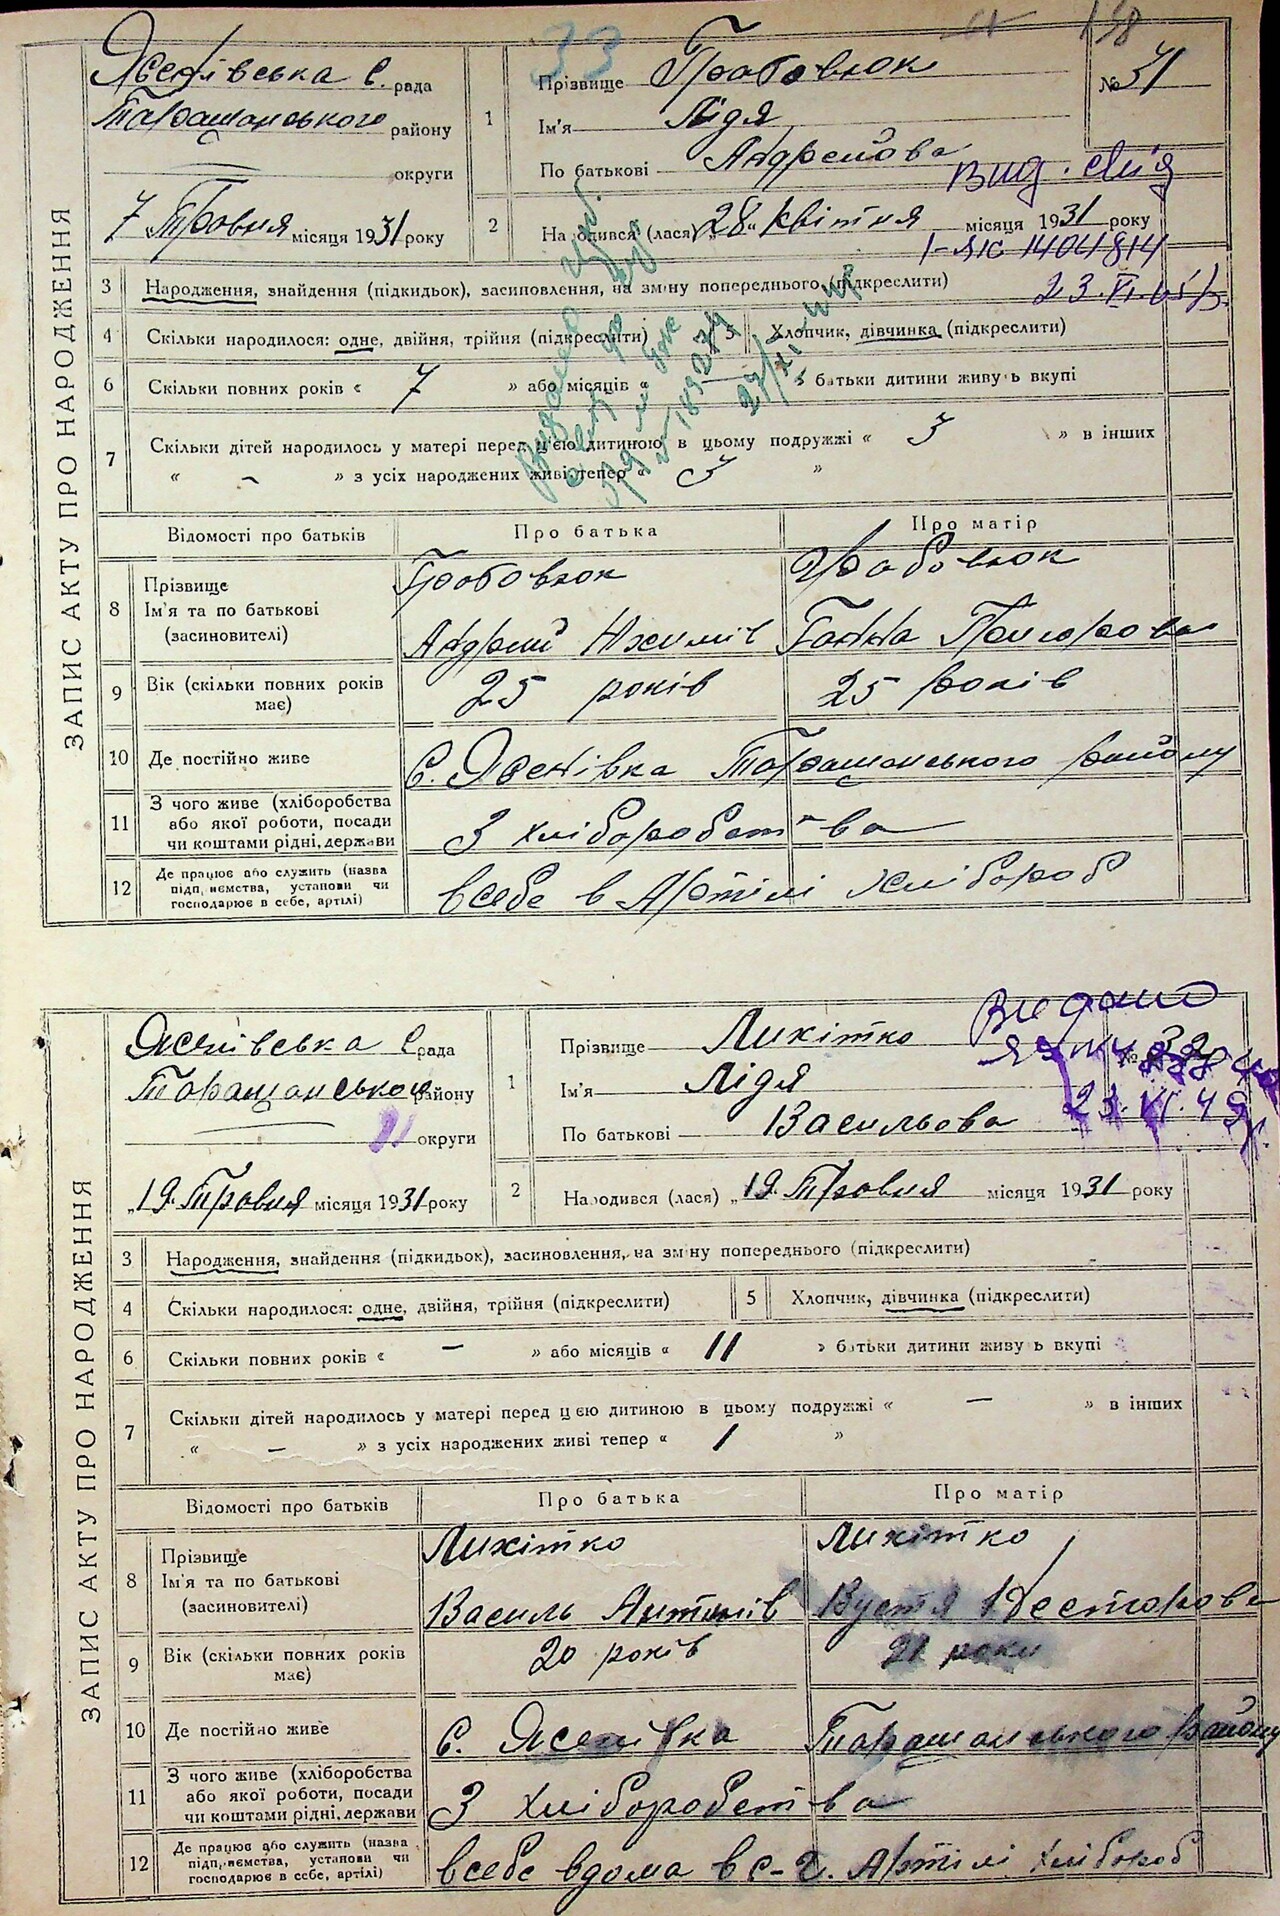 33
158
Ясенівська С. рада
Таращанського району
округи
7 Травня місяця 1931 року
1
Прізвище Грабовлюк
Ім'я Лідя
По батькові Андреєва
№ 31
2
Народився (лася) „28“ Квітня місяця 1931 року
I-ЯЮ 1404814
3 Народження, знайдення (підкидьок), засиновлення, на зміну попереднього (підкреслити)
4 Скільки народилося: одне, двійня, трійня (підкреслити) 5 Хлопчик, дівчинка (підкреслити)
6 Скільки повних років « 7 » або місяців « — » батьки дитини живуть вкупі
7 Скільки дітей народилось у матері перед цією дитиною в цьому подружжі « 3 » в інших
« - » з усіх народжених живі тепер « 3 »
ЗАПИС АКТУ ПРО НАРОДЖЕННЯ
Відомості про батьків Про батька Про матір
8 Прізвище
Ім'я та по батькові
(засиновителі)
Грабовлюк Грабовлюк
Андрий Юхимів Ганна Григорова
9 Вік (скільки повних років має) 25 років 25 років
10 Де постійно живе С. Ясенівка Таращанського району
11 З чого живе (хліборобства або якої роботи, посади чи коштами рідні, держави З хліборобства
12 Де працює або служить (назва підприємства, установи чи господарює в себе, артілі) всебе в Артілі Хлібороб
Видано
Ясенівська С рада
Таращанської району
округи
„19. Травня місяця 1931 року
1
Прізвище Микітко
Ім'я Лідя
По батькові Васильова
№ 32
2
Народився (лася) „19. Травня місяця 1931 року
3 Народження, знайдення (підкидьок), засиновлення, на зміну попереднього (підкреслити)
4 Скільки народилося: одне, двійня, трійня (підкреслити) 5 Хлопчик, дівчинка (підкреслити)
6 Скільки повних років « — » або місяців « 11 » батьки дитини живуть вкупі
7 Скільки дітей народилось у матері перед цією дитиною в цьому подружжі « — » в інших
« — » з усіх народжених живі тепер « 1 »
ЗАПИС АКТУ ПРО НАРОДЖЕННЯ
Відомості про батьків Про батька Про матір
8 Прізвище
Ім'я та по батькові
(засиновителі)
Микітко Микітко
Василь Антинів Вустя Несторова
9 Вік (скільки повних років має) 20 років 21 роки
10 Де постійно живе С. Ясенівка Таращанського району
11 З чого живе (хліборобства або якої роботи, посади чи коштами рідні, держави З Хліборобства
12 Де працює або служить (назва підприємства, установи чи господарює в себе, артілі) всебе вдома в с-г. Артілі Хлібороб